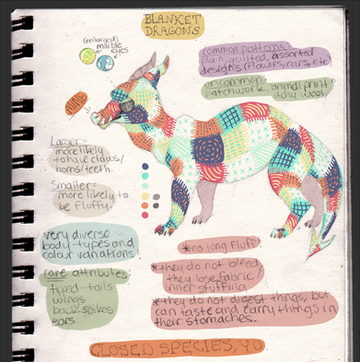 BLANKET
DRAGONS
(enlarged)
marble
eyes
common patterns:
plain, quilted, assorted
designs (flowers, cars, etc
uncommon:
patchwork, animal print
itchy wool
Larger=
more likely
to have claws/
horns/teeth.
Smaller=
more likely to
be fluffy.
very diverse
body-types and
colour variations
rare attributes:
tipped-tails
wings
back spikes
ears
*no long fluff*
*they do not bleed,
they lose fabric/
inner stuffing
*they do not digest things, but
can taste and carry things in
their stomaches.
CLOSED SPECIES, YO